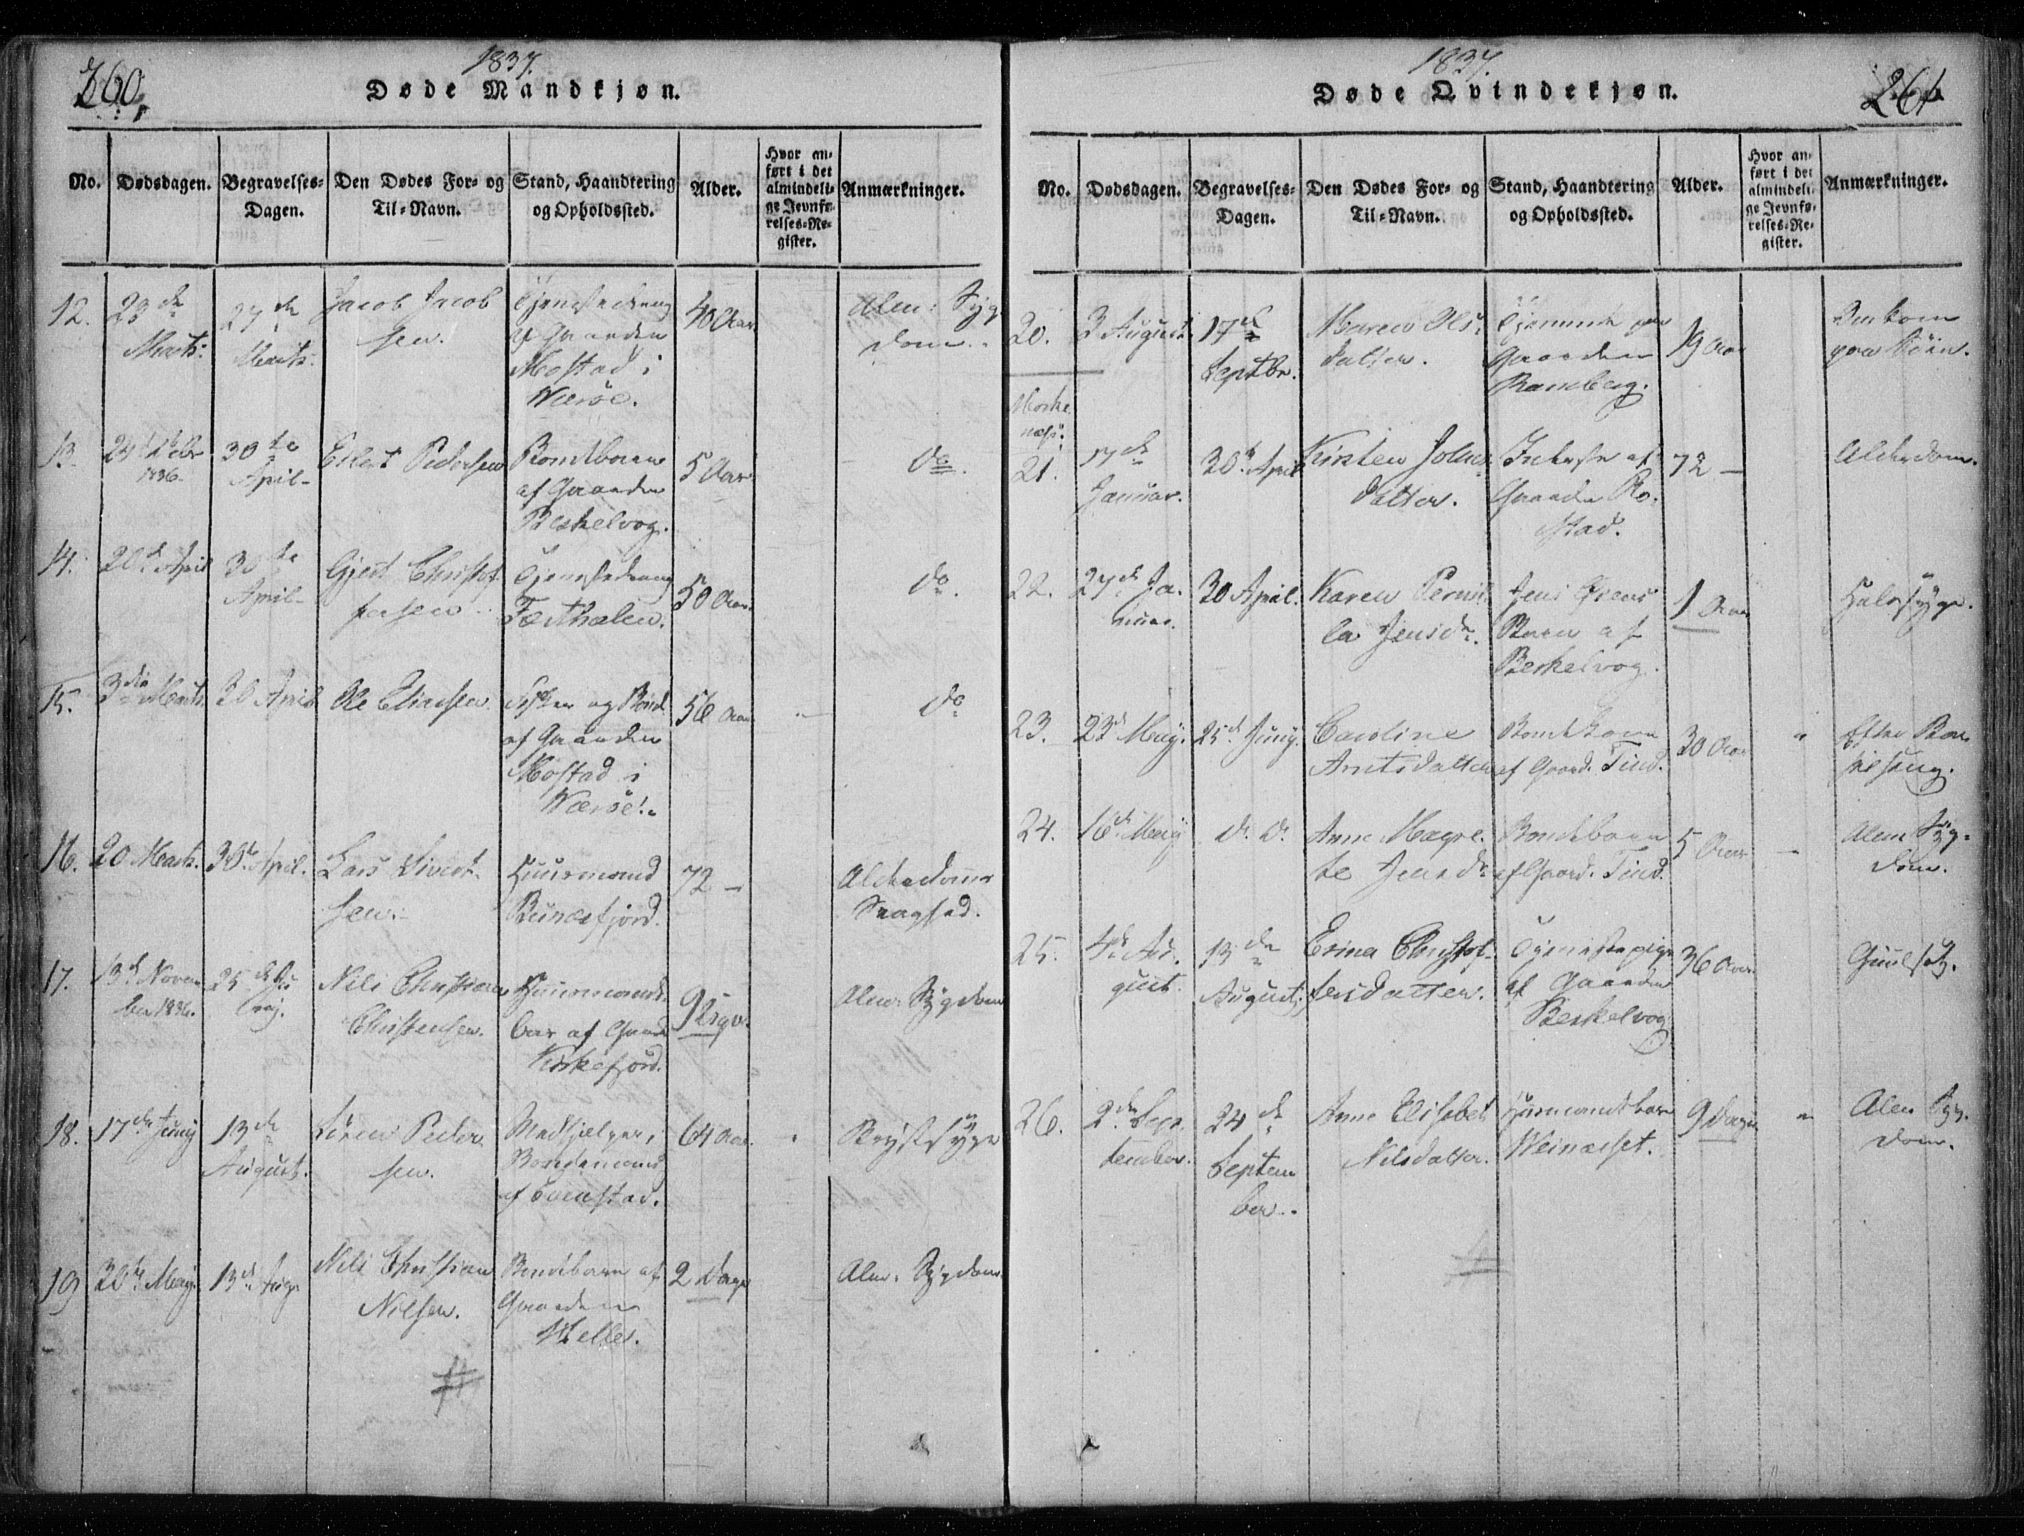 260.
1837.
Døde Mandkjøn.
No.
Dødsdagen.
Begravelses-
Dagen.
Den Dødes For- og
Til-Navn.
Stand, Haandtering
og Opholdssted.
Alder.
Hvor an-
ført i det
almindeli-
ge Jevnfø-
relses-Re-
gister.
Anmærkninger.
12.
23de
Marts.
27de
Marts.
Jacob Jacob
sen.
Gaarden
Mostad i
Værøe.
40 Aar
Alm: Syg-
dom.
13.
1836.
30te
April
Pedersen
Bondbarn
af Gaarden
Beskelvog.
5 Aar
do.
14.
20de April
30te
April
Gjert Christof
fersen
50 Aar.
do.
15.
3die Marts
30 April
Ole Eliassen
og Bond
af Gaarden
Mostad i
Værøe.
56 Aar
do
16.
20 Marts.
30te April.
Lars Sivert-
sen.
Huusmand
Bunesfjord.
72 –
Alderdoms
Svaghed.
17.
13de Novem
ber 1836.
25de
Nils Christian
Christensen.
Huusmands
Barn af Gaard
Kirkefjord.
Alm: Sygdom
18.
17de Juny
13de
August.
Sören Peder
sen.
Bondemand
af Evenstad.
64 Aar.
Brystsyge
19
30te May.
13de Aug
Nils Christian
Nilsen.
Bondbarn af
Gaarden
Helle.
2 Dage
Alm: Sygdom.
1837.
Døde Qvindekjøn.
261
No.
Dødsdagen.
Begravelses-
Dagen.
Den Dødes For- og
Til-Navn.
Stand, Haandtering
og Opholdssted.
Alder.
Hvor an-
ført i det
almindeli-
ge Jevnfø-
relses-Re-
gister.
Anmærkninger.
20.
3 August.
17de
Septbr.
Maren Ols-
datter.
Tjenende paa
Gaarden
Ramberg.
19 Aar
Omkom
paa Söen.
Moske
næs:
21.
17de
Januar.
30te April
Kirsten Johns
datter.
af
Gaarden Ro-
stad.
72 –
Alderdom.
22.
27de Ja-
nuar.
30 April.
Karen Pernil
la Jensdr.
Jens
Barn af
Beskelvog.
1 Aar
Halssyge.
23.
23de May.
25de Juny.
Caroline
Arntsdatter
Bondekone
af Gaard. Tind.
30 Aar
Efter Bar
selseng.
24.
16de May
do. do.
Anne Magre-
te Jensdr
Bondebarn
af Gaard. Tind.
5 Aar
Alm Syg-
dom.
25.
4de Au-
gust.
13de
August
Erina Christof-
fersdatter.
Tjenestepige
af Gaarden
Beskelvog
36 Aar
Guulsot.
26.
2den Sep-
tember.
24de
Septem
ber.
Anne Elisabet
Nilsdatter.
Huusmandsbarn
Weinæsset.
9 Dage
Alm Syg-
dom.